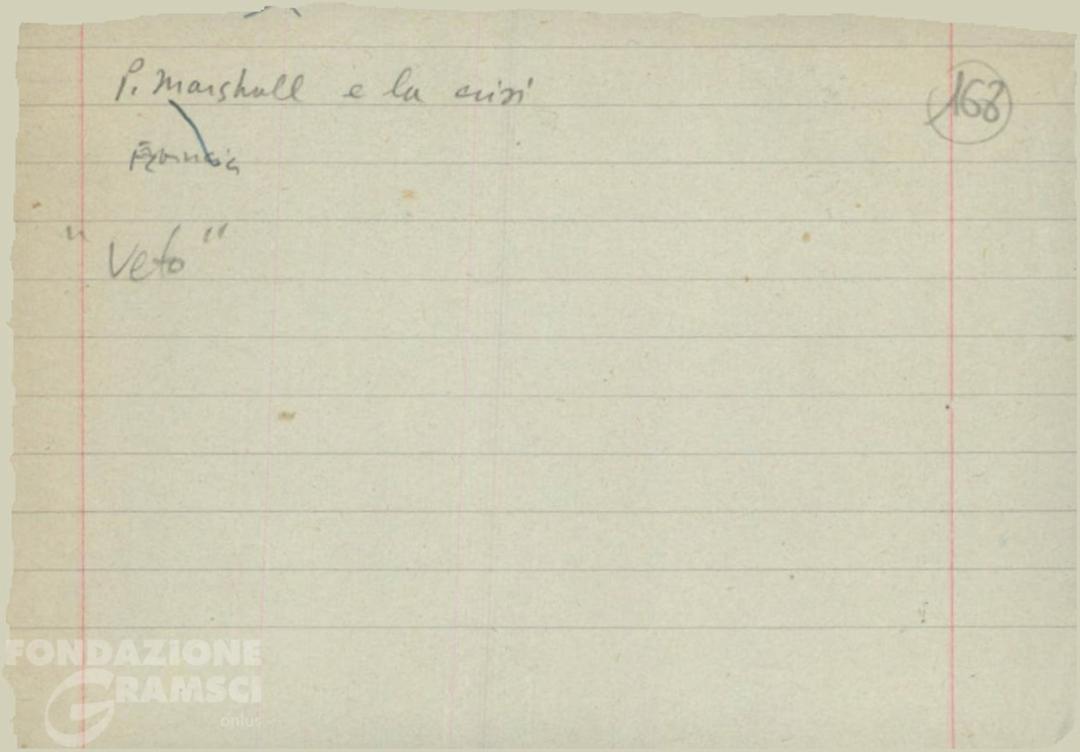 P. Marshall e la crisi
168
Francia
" Veto "
FONDAZIONE
GRAMSCI
onlus